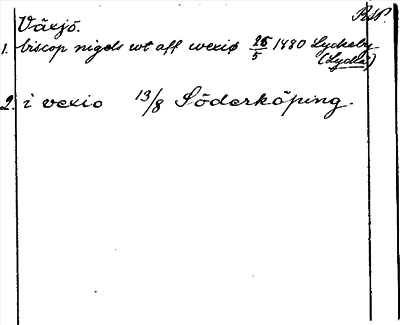 Växjö.
1. biscop nigels wt aff wexiø 25/5 1480 Lyckeby
2. i vexio 13/8 Söderköping.